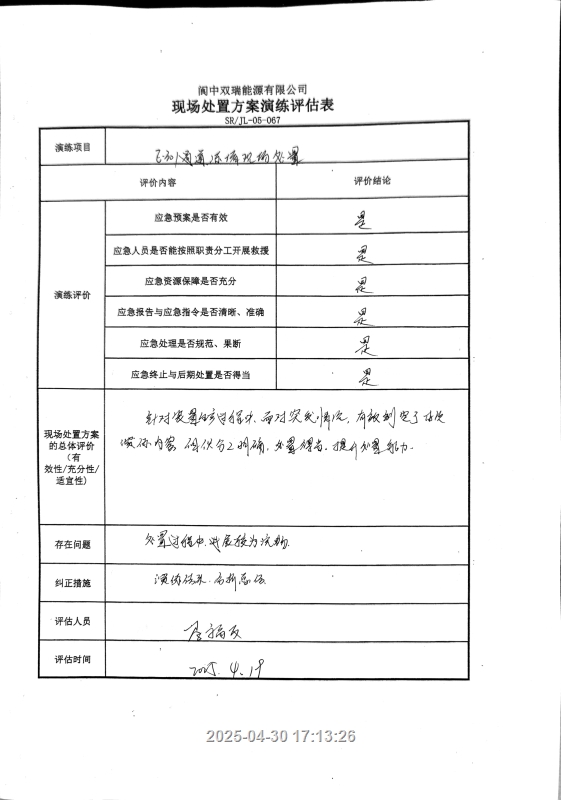 阆中双瑞能源有限公司
现场处置方案演练评估表
SR/JL-05-067
演练项目
管道冻堵现场处置
评价内容 评价结论
演练评价
应急预案是否有效 是
应急人员是否能按照职责分工开展救援 是
应急资源保障是否充分 是
应急报告与应急指令是否清晰、准确 是
应急处理是否规范、果断 是
应急终止与后期处置是否得当 是
现场处置方案
的总体评价
(有
效性/充分性/
适宜性)
针对装置生产过程中,面对突发情况,有
演练内容 分工明确,处置得当,提升处置能力.
存在问题 处置过程中,
纠正措施
评估人员
评估时间 2025.4.19
2025-04-30 17:13:26